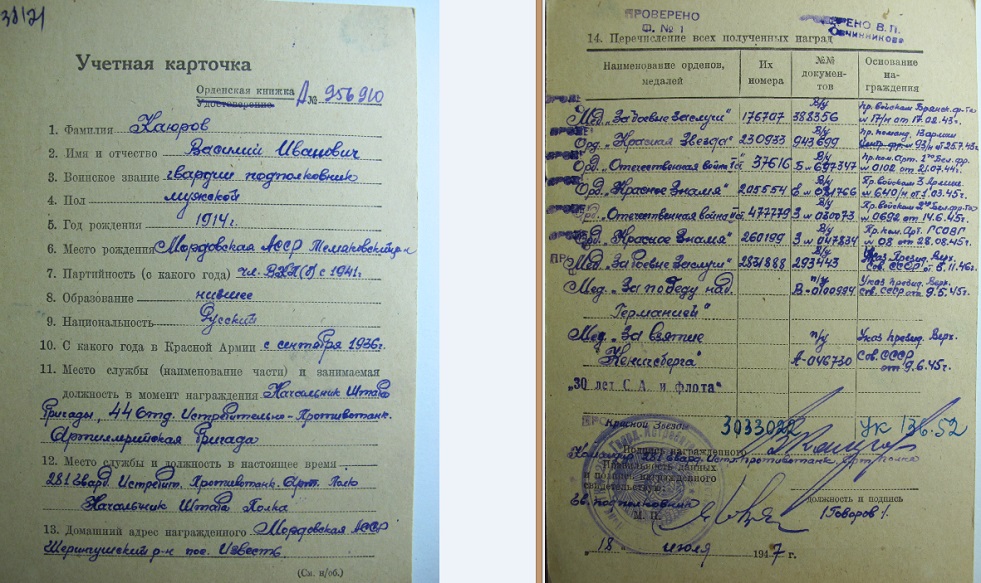 38/21
Учетная карточка
Орденская книжка
Удостоверение А № 956910
1. Фамилия Каюров
2. Имя и отчество Василий Иванович
3. Воинское звание гвардии подполковник
4. Пол мужской
5. Год рождения 1914г.
6. Место рождения Мордовская АССР
7. Партийность (с какого года) чл. ВКП(б) с 1941г.
8. Образование низшее
9. Национальность Русский
10. С какого года в Красной Армии с сентября 1936г.
11. Место службы (наименование части) и занимаемая
должность в момент награждения Начальник Штаба
Бригады, 44 отд. Истребительно-Противотанк.
Артиллерийская Бригада
12. Место службы и должность в настоящее время
281 Гвард. Истребит. Противотанк. Арт. Полк
Начальник Штаба Полка
13. Домашний адрес награжденного Мордовская АССР
р-н пос. Известь
(См. н/об.)
ПРОВЕРЕНО
Ф. № 1
В. П.
ОВЧИННИКОВ
14. Перечисление всех полученных наград
Наименование орденов, медалей Их номера №№ документов Основание награждения
Мед. „За боевые Заслуги" 176707 В/у 388356 Пр. войскам Брянск. ф-та № 17/н от 17.02.43г.
Орд. „Красная Звезда" 230933 В/у 943699 93/н от 25.7.43г.
Орд. „Отечественная война Iст" 37616 В/у Б № 697347 Пр. ком. Арт. 1го Бел. фр. № 0102 от 21.07.44г.
Орд. „Красное Знамя" 205554 В/у Пр. войскам 3 Армии № 640/н от 1.03.45г.
Орд. „Отечественная война 477779 В/у Пр. войскам 2го Бел. фр-та № 0692 от 14.6.45г.
Орд. „Красное Знамя" 260199 В/у З № 047834 Пр. ком. Арт. ГСОВГ № 08 от 28.08.45г.
Мед. „За боевые Заслуги" 2831888 В/у 293443 Указ Презид. Верх. Сов. СССР от 6.11.46г.
Мед. „За победу над Германией" п/у В-0100994 Указ презид. Верх. Сов. СССР от 9.5.45г.
Мед. „За взятие Кенигсберга" п/у А-046730 Указ презид. Верх. Сов. СССР от 9.6.45г.
„30 лет С. А. и флота"
Красной Звезды 3033022 УК 136.52
Подпись награжденного
Командир 281 Гвард. Истр. противотанк. Арт. полка
Правильность данных
и подписи награжденного
свидетельствую:
Гв. подполковник
М. П.
должность и подпись
/Говоров/.
„18" июля 1947 г.